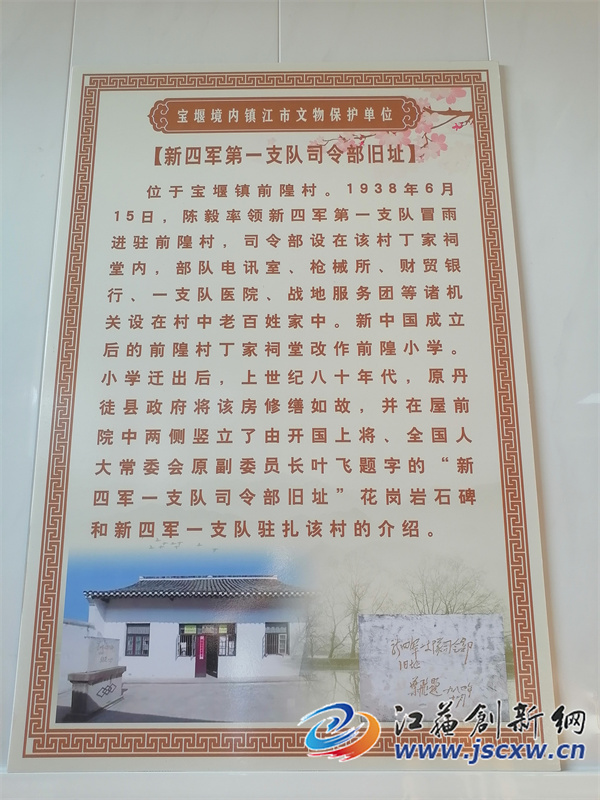 宝堰境内镇江市文物保护单位
【新四军第一支队司令部旧址】
位于宝堰镇前隍村。1938年6月
15日，陈毅率领新四军第一支队冒雨
进驻前隍村，司令部设在该村丁家祠
堂内，部队电讯室、枪械所、财贸银
行、一支队医院、战地服务团等诸机
关设在村中老百姓家中。新中国成立
后的前隍村丁家祠堂改作前隍小学。
小学迁出后，上世纪八十年代，原丹
徒县政府将该房修缮如故，并在屋前
院中两侧竖立了由开国上将、全国人
大常委会原副委员长叶飞题字的“新
四军一支队司令部旧址”花岗岩石碑
和新四军一支队驻扎该村的介绍。
新四军一支队司令部
旧址
江苏创新网
www.jscxw.cn